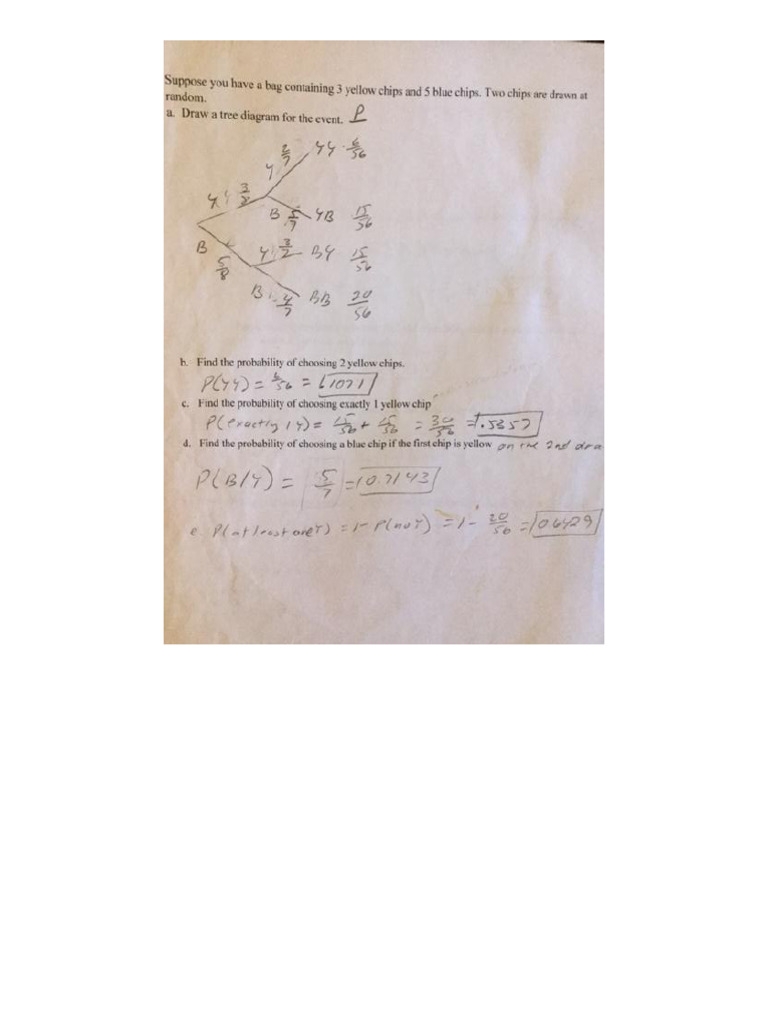 Suppose you have a bag containing 3 yellow chips and 5 blue chips. Two chips are drawn at
random.
a. Draw a tree diagram for the event. P
Y 2/7 YY 6/56
Y 3/
B 5/7 YB 15/56
B 5/8
Y 3/ BY 15/56
B 4/7 BB 20/56
b. Find the probability of choosing 2 yellow chips.
P(YY) = 6/56 = .1071
c. Find the probability of choosing exactly 1 yellow chip
P(exactly 1Y) = 15/56 + 15/56 = 30/56 = .5357
d. Find the probability of choosing a blue chip if the first chip is yellow on the 2nd dra
P(B/Y) = 5/7 = 0.7143
e P(at least one Y) = 1 - P(no Y) = 1 - 20/56 = 0.6429